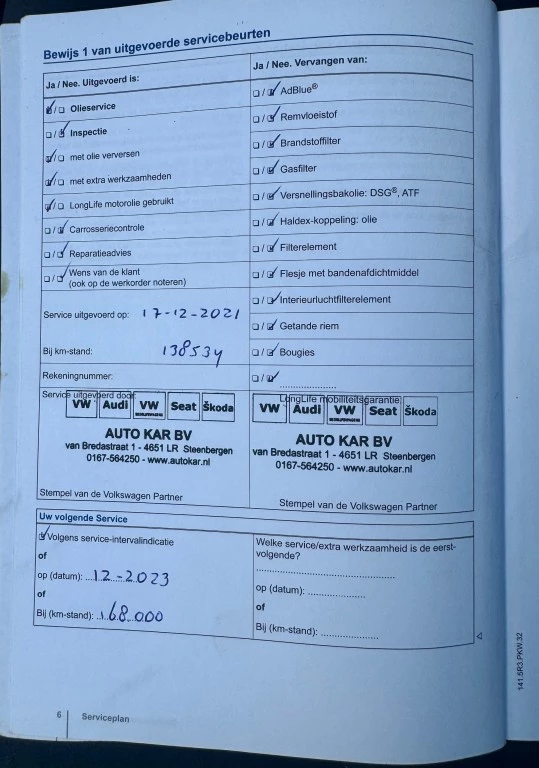 Bewijs 1 van uitgevoerde servicebeurten
Ja / Nee. Uitgevoerd is:
☑/☐ Olieservice
☐/☑ Inspectie
☑/☐ met olie verversen
☑/☐ met extra werkzaamheden
☑/☐ LongLife motorolie gebruikt
☐/☑ Carrosseriecontrole
☐/☑ Reparatieadvies
☐/☑ Wens van de klant
(ook op de werkorder noteren)
Service uitgevoerd op: 17-12-2021
Bij km-stand: 138534
Rekeningnummer:
Service uitgevoerd door:
VW Audi VW Seat Škoda
AUTO KAR BV
van Bredastraat 1 - 4651 LR Steenbergen
0167-564250 - www.autokar.nl
Stempel van de Volkswagen Partner
Ja / Nee. Vervangen van:
☐/☑ AdBlue®
☐/☑ Remvloeistof
☐/☑ Brandstoffilter
☐/☑ Gasfilter
☐/☑ Versnellingsbakolie: DSG®, ATF
☐/☑ Haldex-koppeling: olie
☐/☑ Filterelement
☐/☑ Flesje met bandenafdichtmiddel
☐/☑ Interieurluchtfilterelement
☐/☑ Getande riem
☐/☑ Bougies
☐/☑ ....................
LongLife mobiliteitsgarantie
VW Audi VW Seat Škoda
AUTO KAR BV
van Bredastraat 1 - 4651 LR Steenbergen
0167-564250 - www.autokar.nl
Stempel van de Volkswagen Partner
Uw volgende Service
☑ Volgens service-intervalindicatie
of
op (datum): 12-2023
of
Bij (km-stand): 168.000
Welke service/extra werkzaamheid is de eerst-
volgende?
..................................................
op (datum): ....................
of
Bij (km-stand): ....................
141.5R3.PKW.32
6 Serviceplan